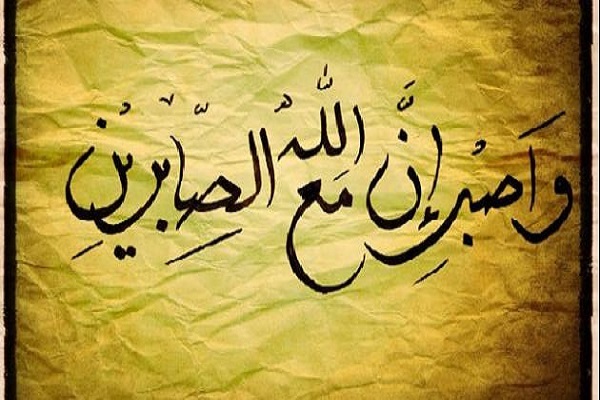 وَاصْبِر إِنَّ اللهُ مَع الصّابِرِينَ